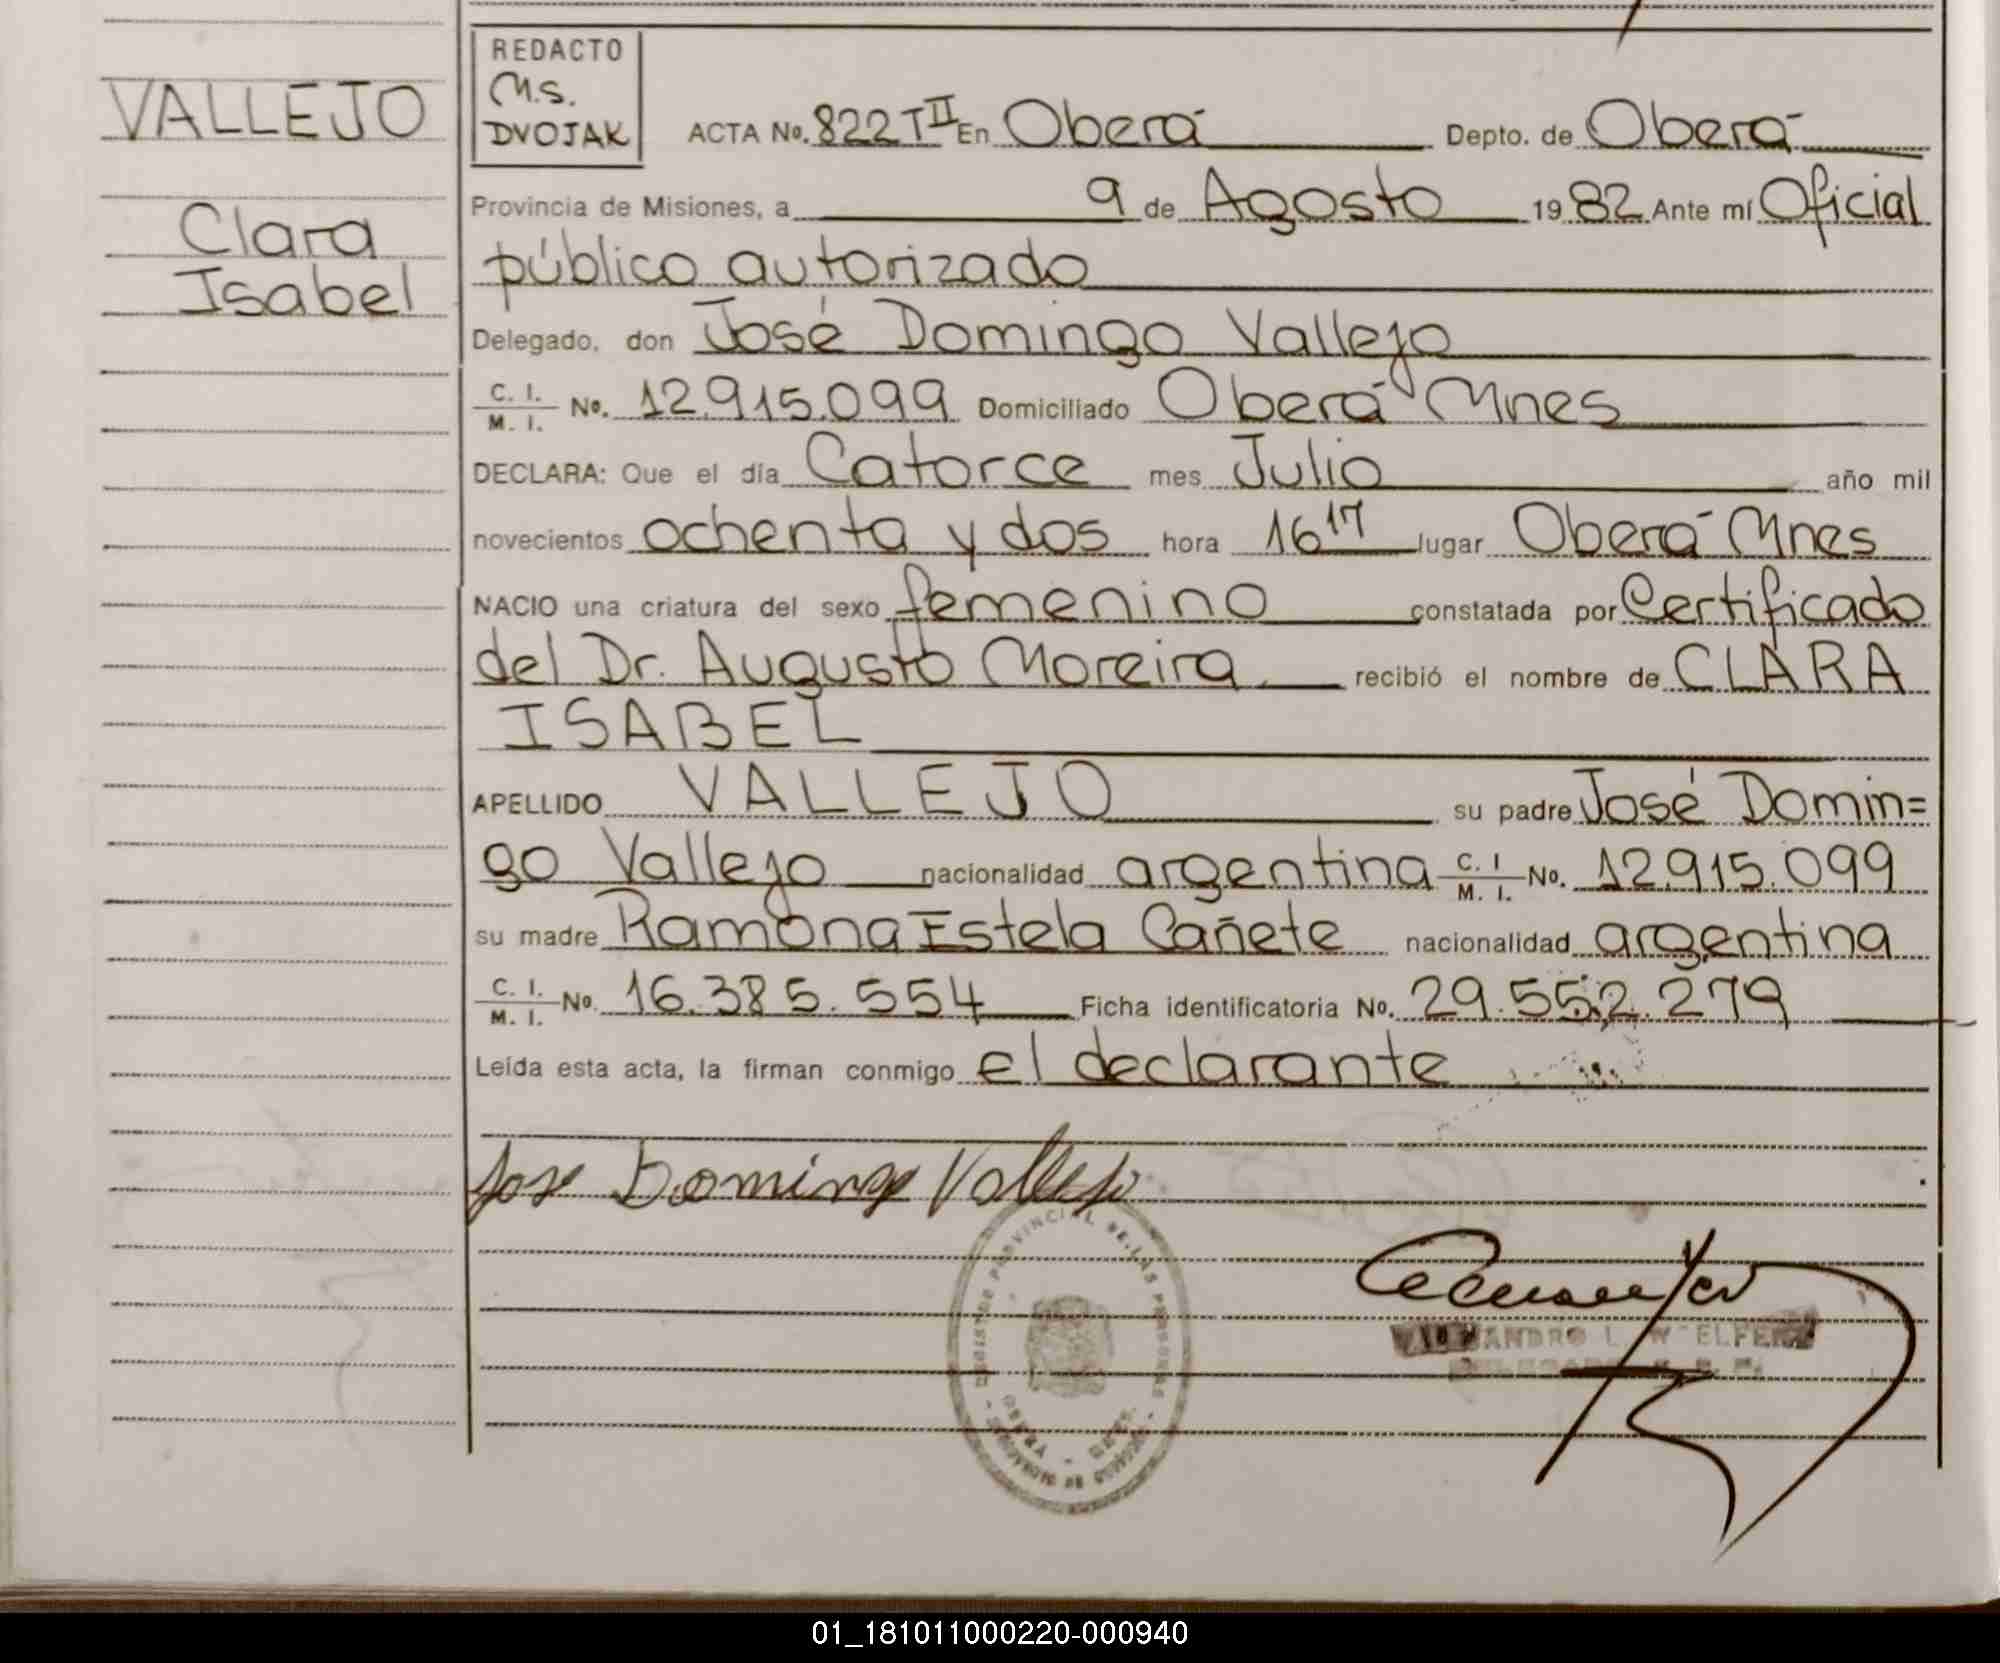 VALLEJO
Clara
Isabel
REDACTO
M.S.
DVOJAK
ACTA No. 822 TII En Oberá Depto. de Oberá
Provincia de Misiones, a 9 de Agosto 1982 Ante mí Oficial
público autorizado
Delegado, don José Domingo Vallejo
C. I. M. I. No. 12.915.099 Domiciliado Oberá Mnes
DECLARA: Que el día Catorce mes Julio año mil
novecientos ochenta y dos hora 16 17 lugar Oberá Mnes
NACIO una criatura del sexo femenino constatada por Certificado
del Dr. Augusto Moreira recibió el nombre de CLARA
ISABEL
APELLIDO VALLEJO su padre José Domin=
go Vallejo nacionalidad argentina C. I M. I. No. 12.915.099
su madre Ramona Estela Cañete nacionalidad argentina
C. I. M. I. No. 16.385.554 Ficha identificatoria No. 29.552.279
Leída esta acta, la firman conmigo el declarante
Jose Domingo Vallejo
REGISTRO PROVINCIAL DE LAS PERSONAS
OBERA
01_181011000220-000940